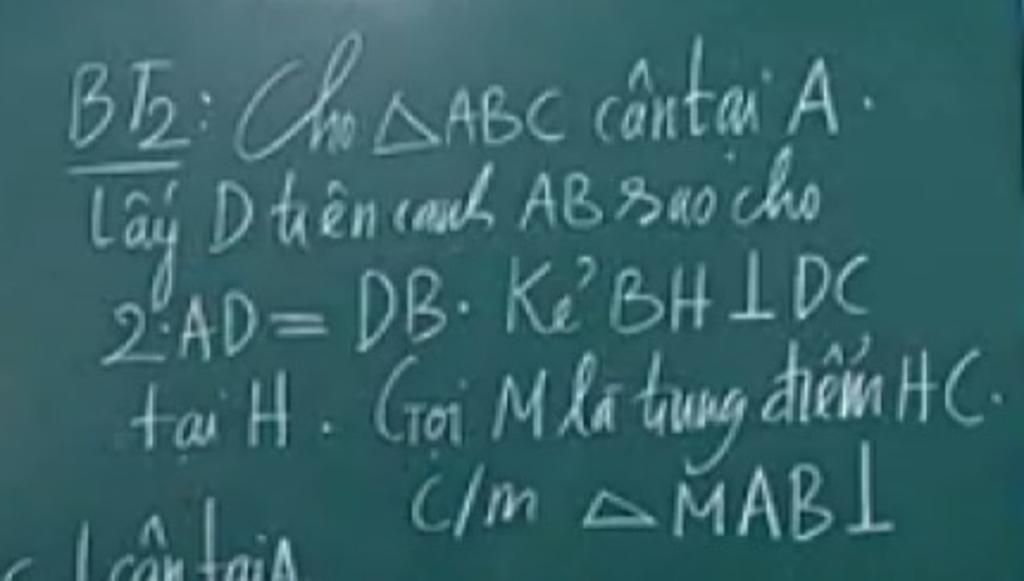 BT2: Cho △ABC cân tại A.
Lấy D trên cạnh AB sao cho
2.AD = DB. Kẻ BH ⊥ DC
tại H. Gọi M là trung điểm HC.
C/m △MAB ⊥
cân tại A